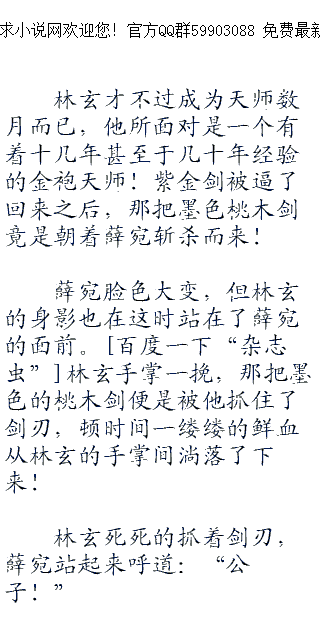 求小说网欢迎您！官方QQ群59903088 免费最新
林玄才不过成为天师数
月而已，他所面对是一个有
着十几年甚至于几十年经验
的金袍天师！紫金剑被逼了
回来之后，那把墨色桃木剑
竟是朝着薛宛斩杀而来！
薛宛脸色大变，但林玄
的身影也在这时站在了薛宛
的面前。[百度一下“杂志
虫”]林玄手掌一挽，那把墨
色的桃木剑便是被他抓住了
剑刃，顿时间一缕缕的鲜血
从林玄的手掌间淌落了下
来！
林玄死死的抓着剑刃，
薛宛站起来呼道：“公
子！”